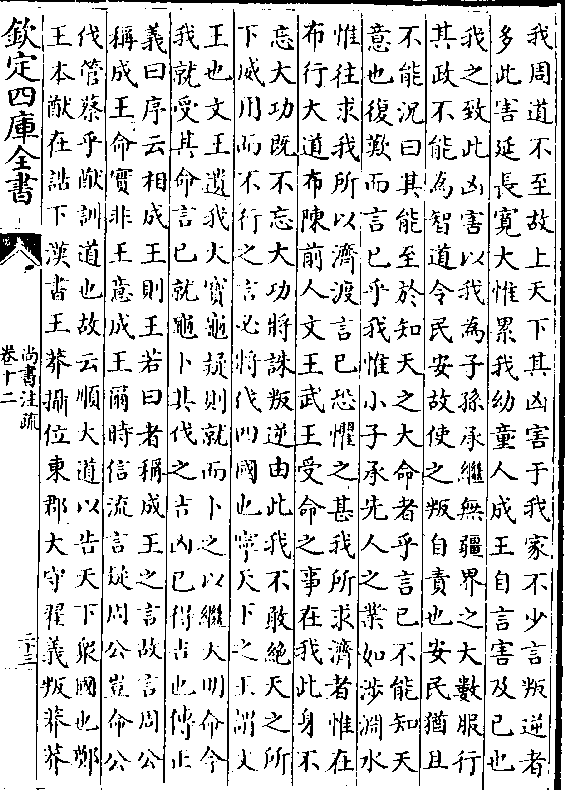 我周道不至故上天下其凶害于我家不少言叛逆者
多此害延長寬大惟累我幼童人成王自言害及已也
我之致此凶害以我為子孫承繼無疆界之大數服行
其政不能為智道令民安故使之叛自責也安民猶且
不能況曰其能至於知天之大命者乎言已不能知天
意也復歎而言已乎我惟小子承先人之業如涉淵水
惟往求我所以濟渡言已恐懼之甚我所求濟者惟在
布行大道布陳前人文王武王受命之事在我此身不
忘大功既不忘大功將誅叛逆由此我不敢絕天之所
下威用而不行之言必將伐四國也寧天下之王謂文
王也文王遺我大寶龜疑則就而卜之以繼天明命今
我就受其命言已就龜卜其伐之吉凶已得吉也傳正
義曰序云相成王則王若曰者稱成王之言故言周公
稱成王命實非王意成王爾時信流言疑周公豈命公
伐管蔡乎猷訓道也故云順大道以告天下衆國也鄭
王本猷在誥下漢書王莽攝位東郡太守翟義叛莽莽
欽定四庫全書
尚書注疏
卷十二
二十三